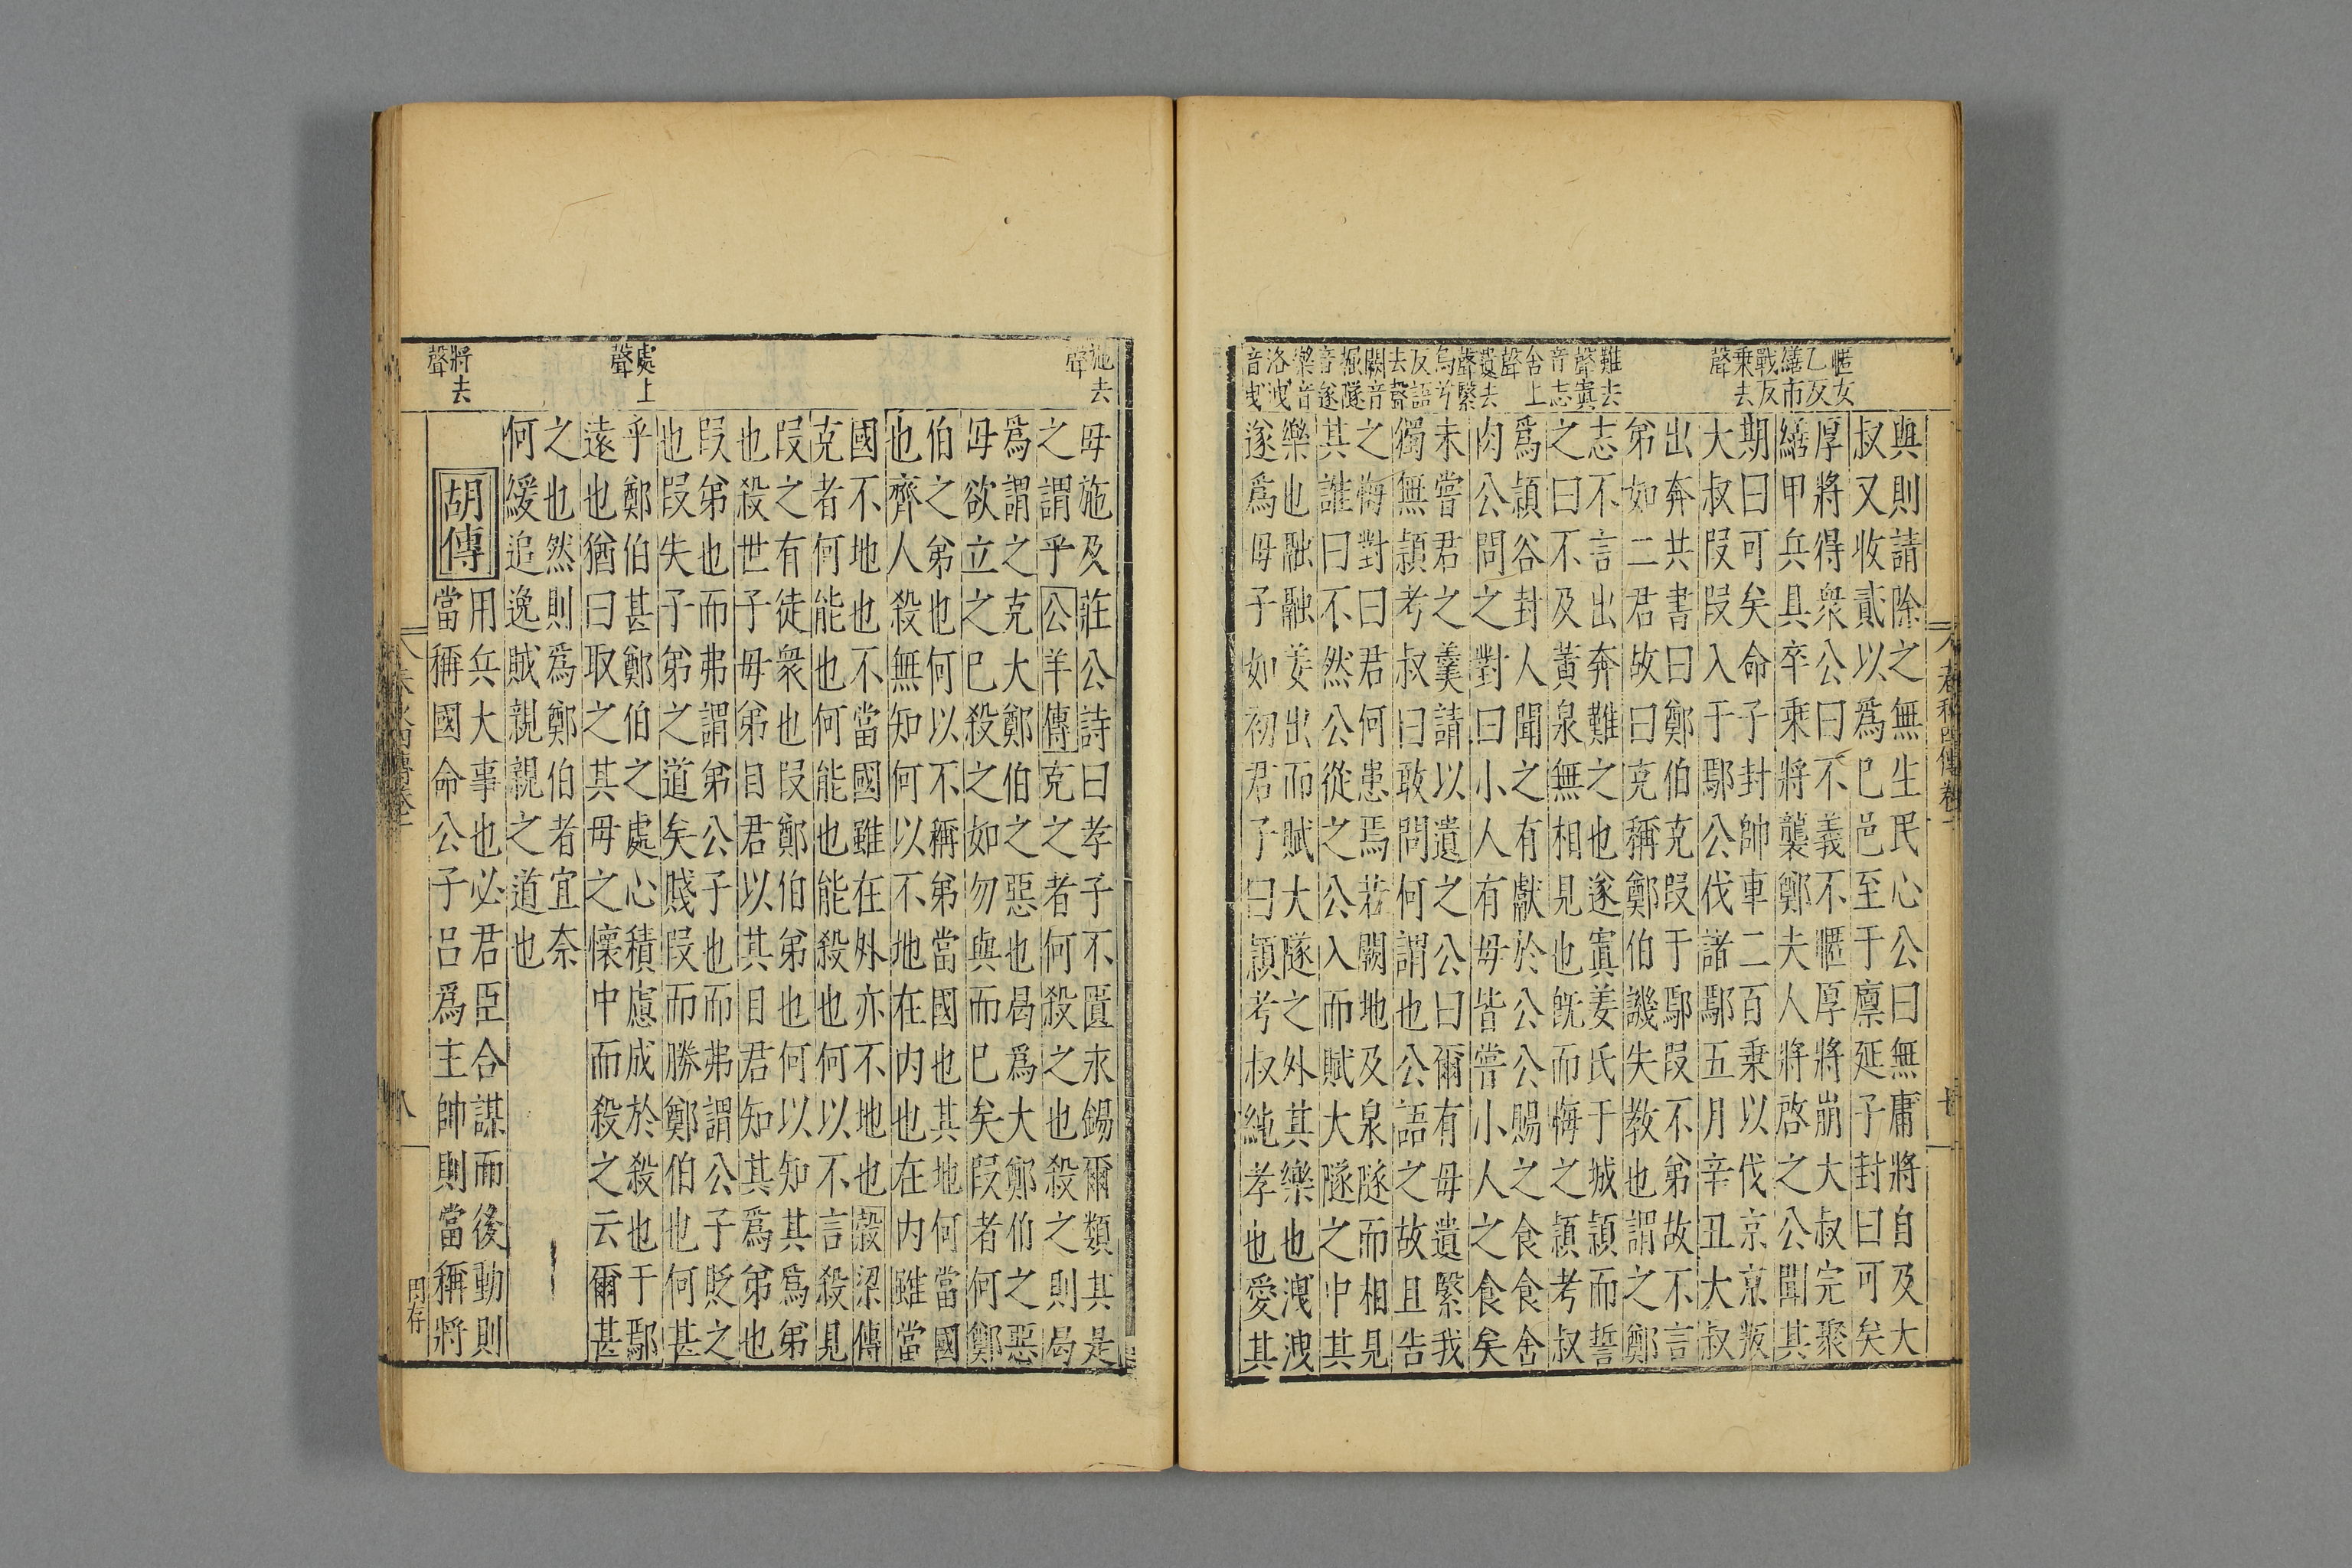 暱女
乙反
繕市
戰反
乘去
聲
難去
聲寘
音志
舍上
聲
遺去
聲繄
烏兮
反語
去聲
闕音
掘隧
音遂
樂音
洛洩
音曳
與則請除之無生民心公曰無庸將自及大
叔又收貳以爲已邑至于廩延子封曰可矣
厚將得衆公曰不義不暱厚將崩大叔完聚
繕甲兵具卒乘將襲鄭夫人將啓之公聞其
期曰可矣命子封帥車二百乘以伐京京叛
大叔段段入于鄢公伐諸鄢五月辛丑大叔
出奔共書曰鄭伯克段于鄢段不弟故不言
弟如二君故曰克稱鄭伯譏失教也謂之鄭
志不言出奔難之也遂寘姜氏于城潁而誓
之曰不及黃泉無相見也旣而悔之潁考叔
爲潁谷封人聞之有獻於公公賜之食食舍
肉公問之對曰小人有母皆嘗小人之食矣
未嘗君之羹請以遺之公曰爾有母遺繄我
獨無潁考叔曰敢問何謂也公語之故且告
之悔對曰君何患焉若闕地及泉隧而相見
其誰曰不然公從之公入而賦大隧之中其
樂也融融姜出而賦大隧之外其樂也洩洩
遂爲母子如初君子曰潁考叔純孝也愛其
施去
聲
處上
聲
將去
聲
母施及莊公詩曰孝子不匱永錫爾類其是
之謂乎公羊傳克之者何殺之也殺之則曷
爲謂之克大鄭伯之惡也曷爲大鄭伯之惡
母欲立之已殺之如勿與而已矣段者何鄭
伯之弟也何以不稱弟當國也其地何當國
也齊人殺無知何以不地在内也在内雖當
國不地也不當國雖在外亦不地也穀梁傳
克者何能也何能也能殺也何以不言殺見
段之有徒衆也段鄭伯弟也何以知其爲弟
也殺世子母弟目君以其目君知其爲弟也
段弟也而弗謂弟公子也而弗謂公子貶之
也段失子弟之道矣賤段而勝鄭伯也何甚
乎鄭伯甚鄭伯之處心積慮成於殺也于鄢
遠也猶曰取之其母之懷中而殺之云爾甚
之也然則爲鄭伯者宜奈
何緩追逸賊親親之道也
胡傳
用兵大事也必君臣合謀而後動則
當稱國命公子呂爲主帥則當稱將